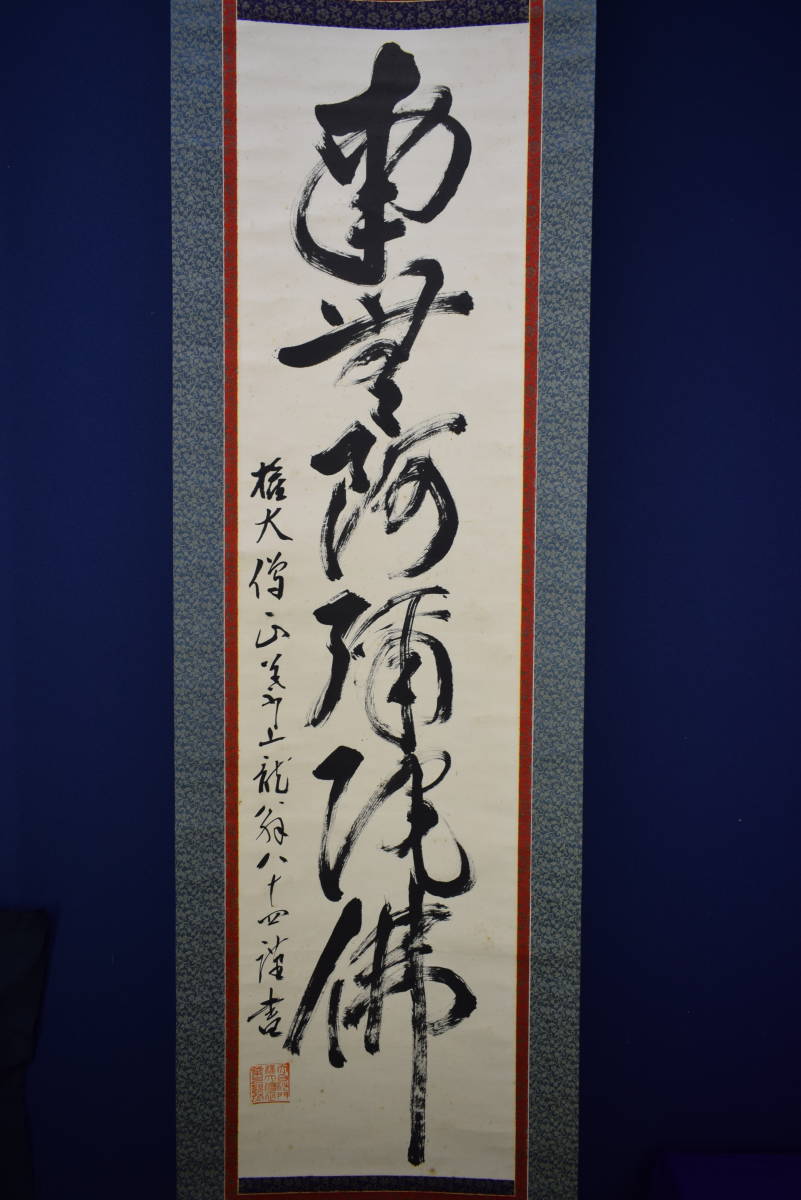 南無阿彌陀佛
権大僧正井上龍翁八十四謹書